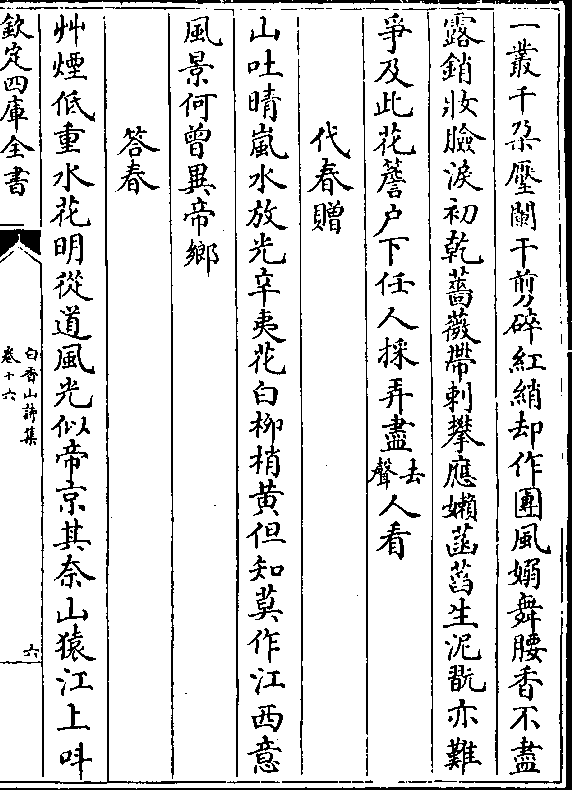 一叢千朶壓闌干剪碎紅綃却作團風嫋舞腰香不盡
露銷妝臉淚初乾薔薇帶刺攀應嬾菡萏生泥翫亦難
爭及此花簷户下任人採弄盡去聲人看
代春贈
山吐晴嵐水放光辛夷花白柳梢黃但知莫作江西意
風景何曾異帝鄉
答春
艸煙低重水花明從道風光似帝京其奈山猿江上呌
欽定四庫全書
白香山詩集
卷十六
六